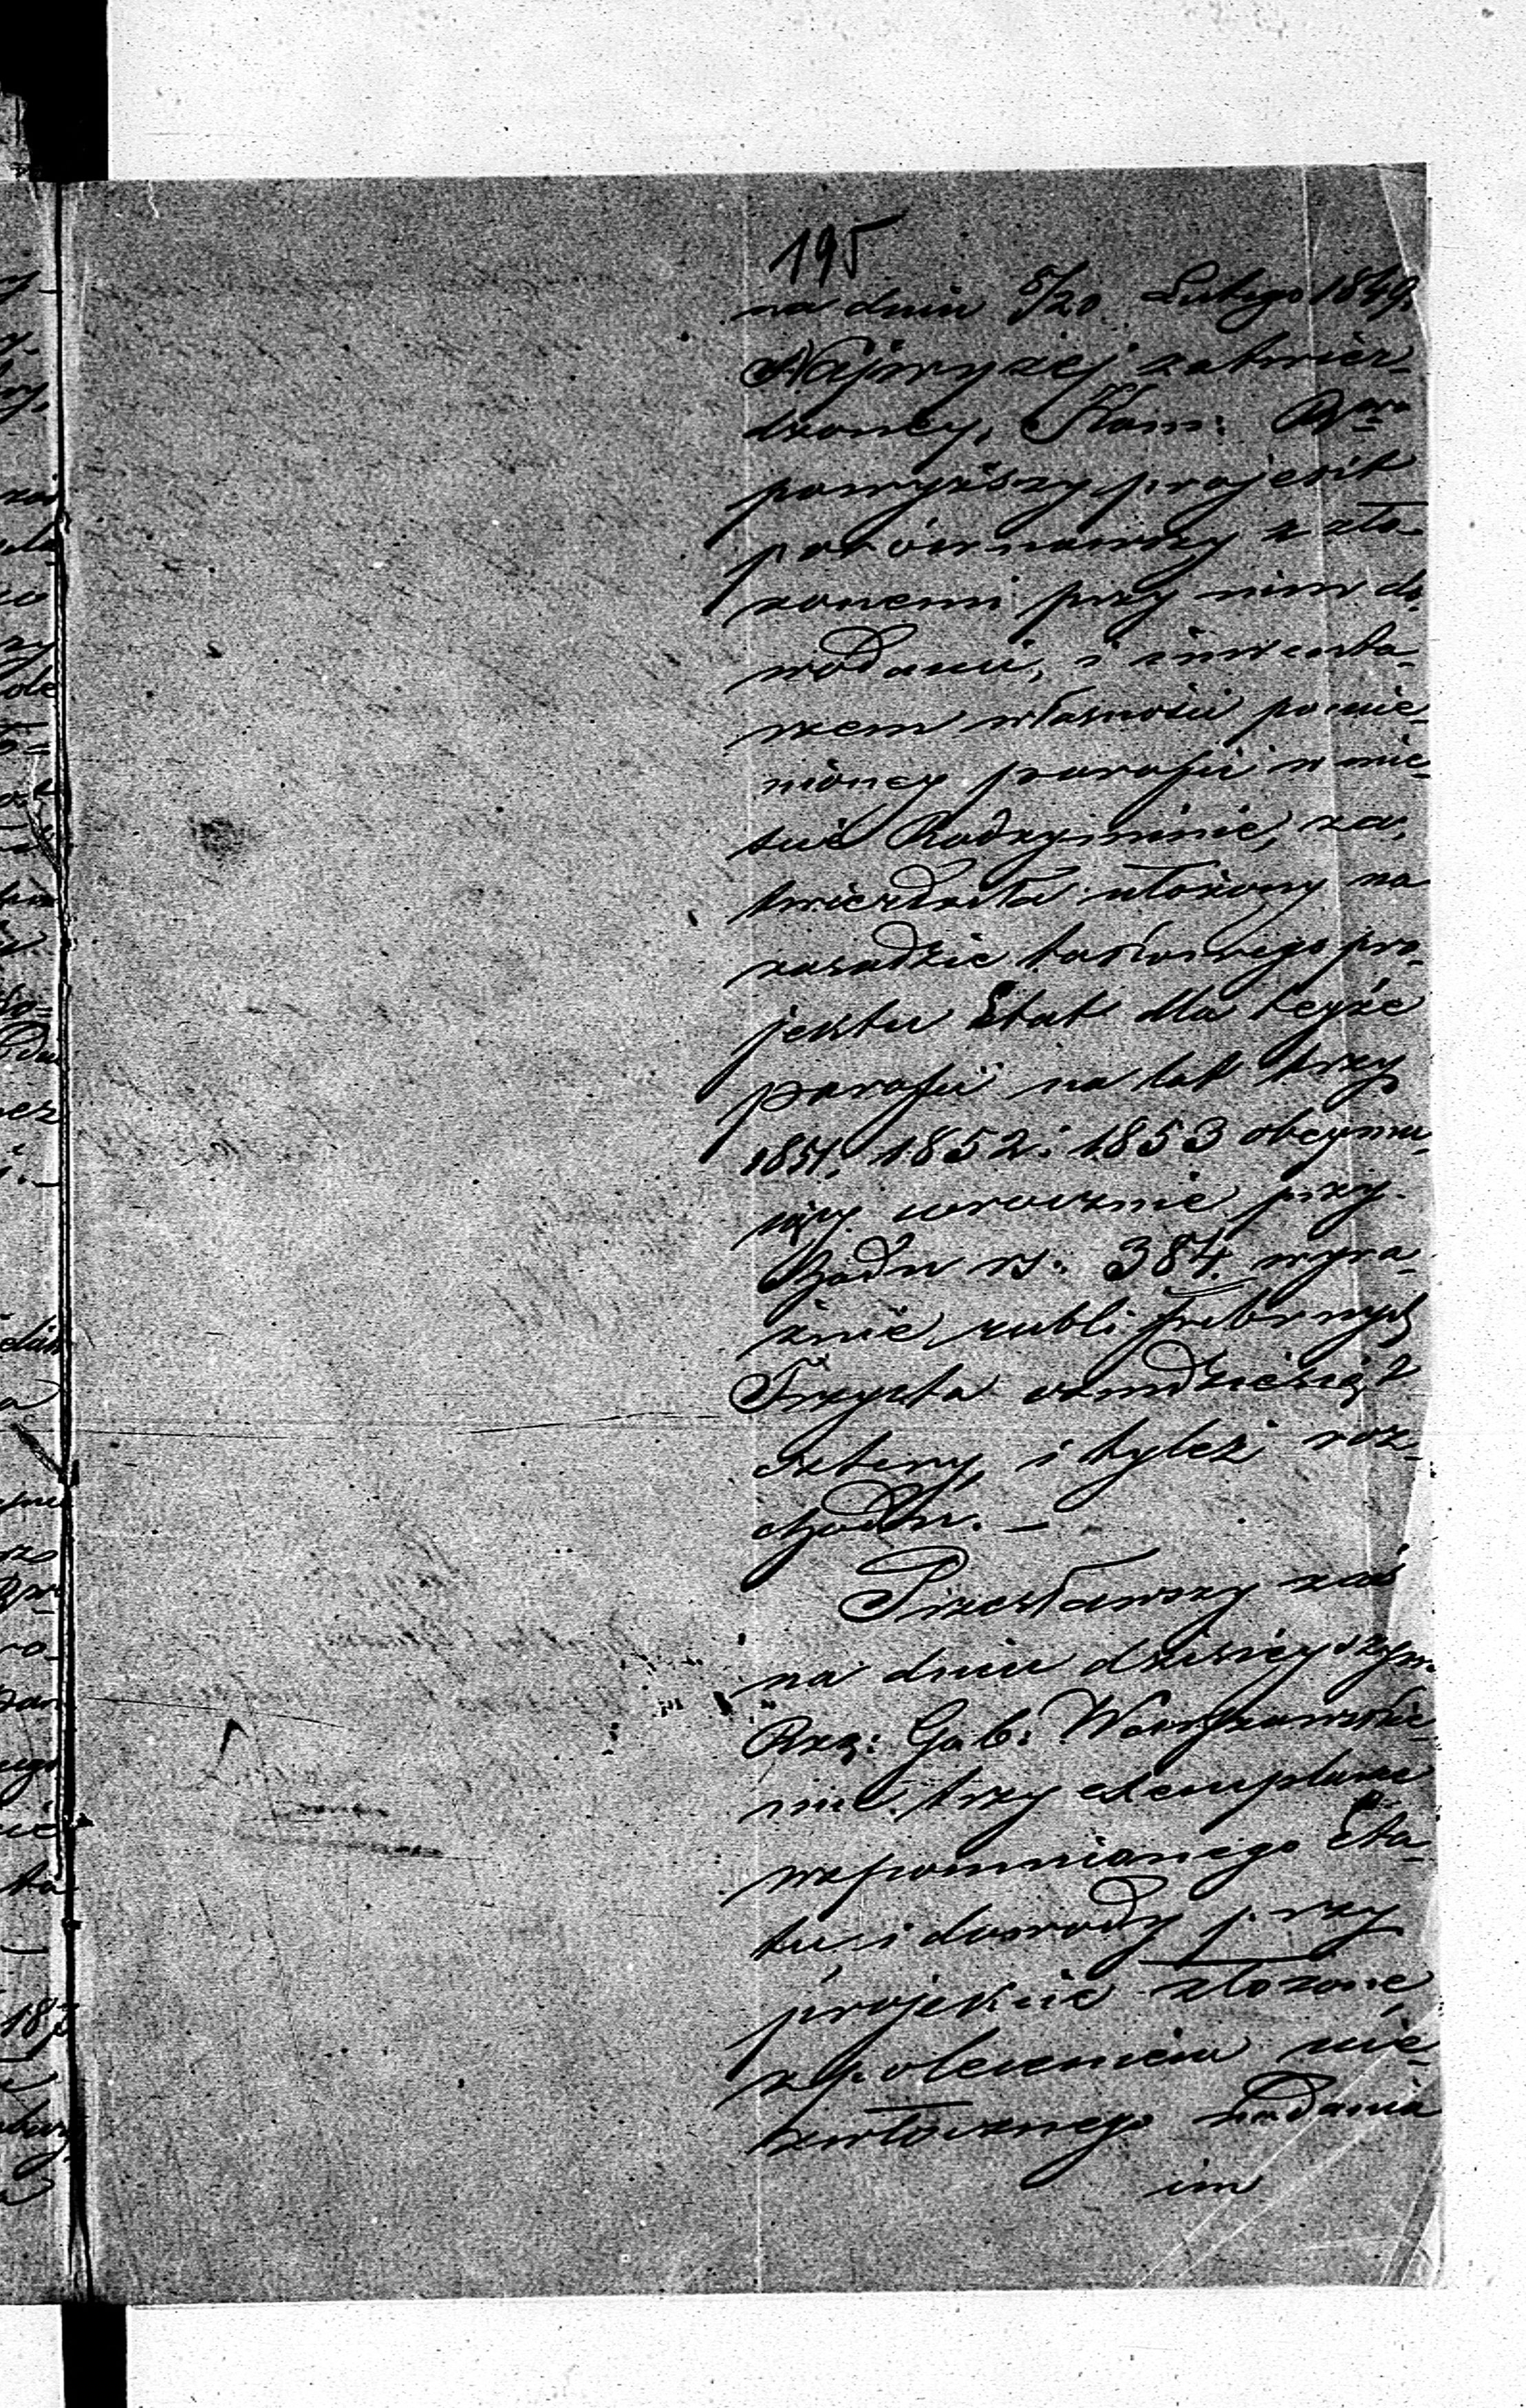 195
na dniu 8/20 Lutego 1849.
Najwyżej zatwier-
dzoney, Kom: Rząwa
powyższy projekt
porównawszy z zło-
żonemi przy nim do-
wodami, i inwenta-
rzem własności pomie-
nioney parafii w mie-
ście Radzyminie, za-
twierdziła ułożony na
zasadzie takowego pro-
jektu Etat dla teyże
parafii na lat trzy
1851, 1852 i 1853 obeymu-
jący corocznie przy-
chodu rs: 384. wyra-
źnie rubli srebrnych
Trzysta osmdziesiąt
cztery, i tyleż roz-
chodu. —
Przesławszy zaś
na dniu dzisieyszym
Rzą: Gub: Warszawskie-
mu trzy exemplarze
wspomnionego Eta-
tu, i dowody przy
projekcie złożone,
z poleceniem nie-
zwłocznego nadania
im